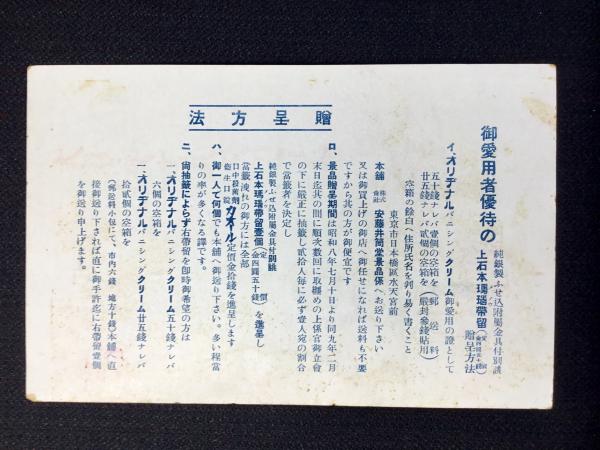 贈呈方法
御愛用者優待の
純銀製ふせ込附屬金具付別誂
上石本瑪瑙帶留
贈呈方法
イ、オリヂナルバニシングクリーム御愛用の證として
五十錢ナレバ壹個の空箱を
廿五錢ナレバ貳個の空箱を
(郵送料
嚴封參錢貼用)
空箱の餘白へ住所氏名を判り易く書くこと
東京市日本橋區水天宮前
本舗 株式會社 安藤井筒堂景品係へお送り下さい
又は御買上げの御店へ御任せになれば送料も不要
ですから其の方が御便宜です
ロ、景品贈呈期間は昭和八年七月十日より同九年二月
末日迄其の間に順次數回に取纏めの上係官御立會
の下に嚴正に抽籤し貳拾人每に必ず壹人宛の割合
で當籤者を決定し
純銀製ふせ込附屬金具付別誂
上石本瑪瑙帶留壹個(定價金四圓五十錢)を進呈し
當籤洩れの御方には全部
口中殺菌劑
衞生口錠 カオール定價金拾錢を進呈します
ハ、御一人で何個でも本舗へ御送り下さい。多い程當
りの率が多くなる譯です。
ニ、尙抽籤によらず右帶留を卽時御希望の方は
一、オリヂナルバニシングクリーム五十錢ナレバ
六個の空箱を
一、オリヂナルバニシングクリーム廿五錢ナレバ
拾貳個の空箱を
(郵送料小包にて、市內六錢 地方十錢)本舗へ直
接御送り下されば直に御手許迄に右帶留壹個
を御送り申上げます。